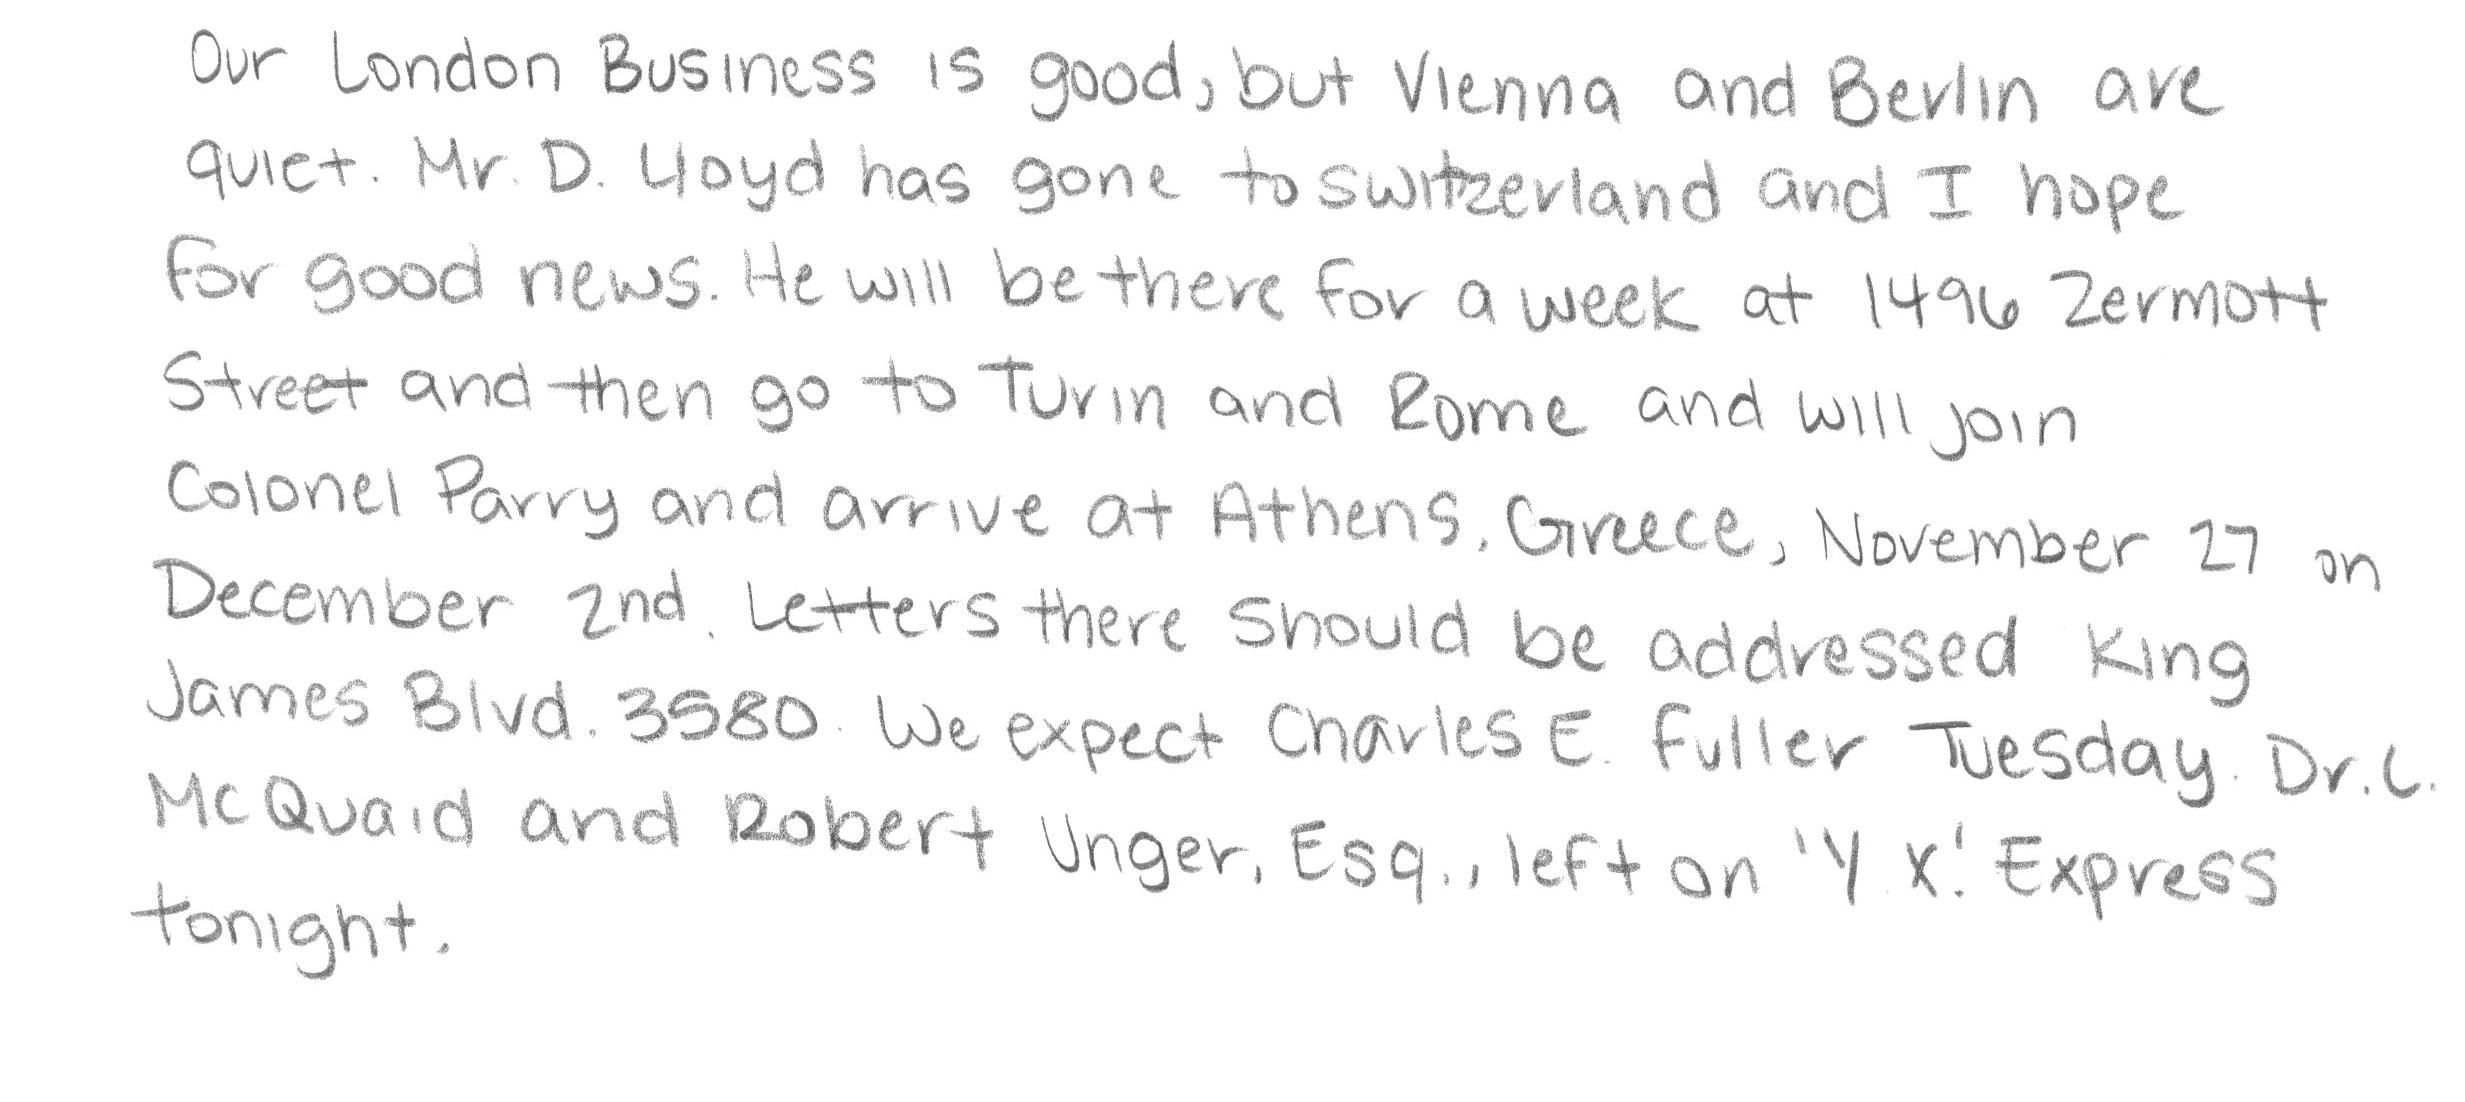 Our London Business is good, but Vienna and Berlin are
quiet. Mr. D. Lloyd has gone to switzerland and I hope
for good news. He will be there for a week at 1496 Zermott
Street and then go to Turin and Rome and will join
Colonel Parry and arrive at Athens, Greece, November 27 on
December 2nd. Letters there Should be addressed King
James Blvd. 3580. We expect Charles E. Fuller Tuesday. Dr. L.
McQuaid and Robert Unger, Esq., left on 'Y. X.' Express
tonight.